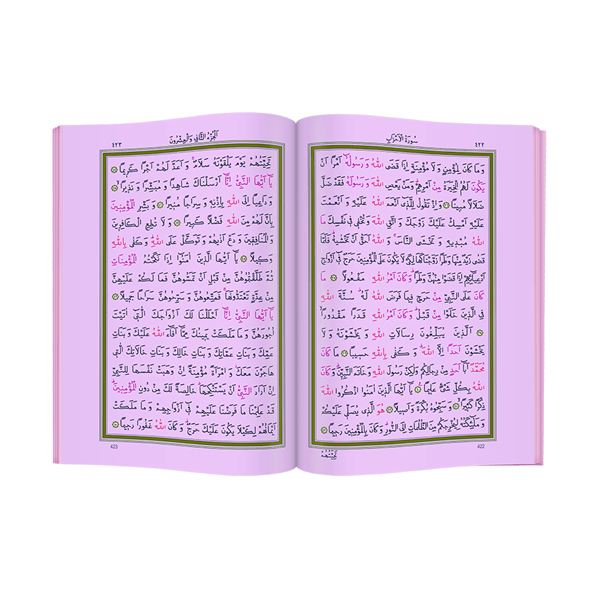 ٤٢٢ سُورَةُ الْاَحْزَابِ
وَمَا كَانَ لِمُؤْمِنٍ وَلَا مُؤْمِنَةٍ اِذَا قَضَى اللّٰهُ وَرَسُولُهُٓ اَمْرًا اَنْ
يَكُونَ لَهُمُ الْخِيَرَةُ مِنْ اَمْرِهِمْ وَمَنْ يَعْصِ اللّٰهَ وَرَسُولَهُ فَقَدْ ضَلَّ
ضَلَالًا مُبِينًا ۝ وَاِذْ تَقُولُ لِلَّذِٓي اَنْعَمَ اللّٰهُ عَلَيْهِ وَاَنْعَمْتَ
عَلَيْهِ اَمْسِكْ عَلَيْكَ زَوْجَكَ وَاتَّقِ اللّٰهَ وَتُخْفِي فِي نَفْسِكَ مَا
اللّٰهُ مُبْدِيهِ وَتَخْشَى النَّاسَ وَاللّٰهُ اَحَقُّ اَنْ تَخْشٰيهُ فَلَمَّا
قَضٰى زَيْدٌ مِنْهَا وَطَرًا زَوَّجْنَاكَهَا لِكَيْ لَا يَكُونَ عَلَى الْمُؤْمِنِينَ حَرَجٌ فِٓي اَزْوَاجِ
اَدْعِيَٓائِهِمْ اِذَا قَضَوْا مِنْهُنَّ وَطَرًا وَكَانَ اَمْرُ اللّٰهِ مَفْعُولًا ۝ مَا
كَانَ عَلَى النَّبِيِّ مِنْ حَرَجٍ فِيمَا فَرَضَ اللّٰهُ لَهُ سُنَّةَ اللّٰهِ
فِي الَّذِينَ خَلَوْا مِنْ قَبْلُ وَكَانَ اَمْرُ اللّٰهِ قَدَرًا مَقْدُورًا
۝ اَلَّذِينَ يُبَلِّغُونَ رِسَالَاتِ اللّٰهِ وَيَخْشَوْنَهُ وَلَا
يَخْشَوْنَ اَحَدًا اِلَّا اللّٰهَ وَكَفٰى بِاللّٰهِ حَسِيبًا ۝ مَا كَانَ
مُحَمَّدٌ اَبَٓا اَحَدٍ مِنْ رِجَالِكُمْ وَلٰكِنْ رَسُولَ اللّٰهِ وَخَاتَمَ النَّبِيِّنَ وَكَانَ
اللّٰهُ بِكُلِّ شَيْءٍ عَلِيمًا ۝ يَٓا اَيُّهَا الَّذِينَ اٰمَنُوا اذْكُرُوا اللّٰهَ
ذِكْرًا كَثِيرًا ۝ وَسَبِّحُوهُ بُكْرَةً وَاَصِيلًا ۝ هُوَ الَّذِي يُصَلِّي عَلَيْكُمْ
وَمَلٰٓئِكَتُهُ لِيُخْرِجَكُمْ مِنَ الظُّلُمَاتِ اِلَى النُّورِ وَكَانَ بِالْمُؤْمِنِينَ رَحِيمًا ۝
تَحِيَّتُهُمْ
422
اَلْجُزْءُ الثَّانِي وَالْعِشْرُونَ ٤٢٣
تَحِيَّتُهُمْ يَوْمَ يَلْقَوْنَهُ سَلَامٌ وَاَعَدَّ لَهُمْ اَجْرًا كَرِيمًا ۝
يَٓا اَيُّهَا النَّبِيُّ اِنَّٓا اَرْسَلْنَاكَ شَاهِدًا وَمُبَشِّرًا وَنَذِيرًا ۝
وَدَاعِيًا اِلَى اللّٰهِ بِاِذْنِهِ وَسِرَاجًا مُنِيرًا ۝ وَبَشِّرِ الْمُؤْمِنِينَ
بِاَنَّ لَهُمْ مِنَ اللّٰهِ فَضْلًا كَبِيرًا ۝ وَلَا تُطِعِ الْكَافِرِينَ
وَالْمُنَافِقِينَ وَدَعْ اَذٰيهُمْ وَتَوَكَّلْ عَلَى اللّٰهِ وَكَفٰى بِاللّٰهِ
وَكِيلًا ۝ يَٓا اَيُّهَا الَّذِينَ اٰمَنُٓوا اِذَا نَكَحْتُمُ الْمُؤْمِنَاتِ
ثُمَّ طَلَّقْتُمُوهُنَّ مِنْ قَبْلِ اَنْ تَمَسُّوهُنَّ فَمَا لَكُمْ عَلَيْهِنَّ
مِنْ عِدَّةٍ تَعْتَدُّونَهَا فَمَتِّعُوهُنَّ وَسَرِّحُوهُنَّ سَرَاحًا جَمِيلًا ۝
يَٓا اَيُّهَا النَّبِيُّ اِنَّٓا اَحْلَلْنَا لَكَ اَزْوَاجَكَ الّٰتِٓي اٰتَيْتَ
اُجُورَهُنَّ وَمَا مَلَكَتْ يَمِينُكَ مِمَّٓا اَفَٓاءَ اللّٰهُ عَلَيْكَ وَبَنَاتِ
عَمِّكَ وَبَنَاتِ عَمَّاتِكَ وَبَنَاتِ خَالِكَ وَبَنَاتِ خَالَاتِكَ الّٰتِي
هَاجَرْنَ مَعَكَ وَامْرَاَةً مُؤْمِنَةً اِنْ وَهَبَتْ نَفْسَهَا لِلنَّبِيِّ
اِنْ اَرَادَ النَّبِيُّ اَنْ يَسْتَنْكِحَهَا خَالِصَةً لَكَ مِنْ دُونِ الْمُؤْمِنِينَ
قَدْ عَلِمْنَا مَا فَرَضْنَا عَلَيْهِمْ فِٓي اَزْوَاجِهِمْ وَمَا مَلَكَتْ
اَيْمَانُهُمْ لِكَيْلَا يَكُونَ عَلَيْكَ حَرَجٌ وَكَانَ اللّٰهُ غَفُورًا رَحِيمًا ۝
423